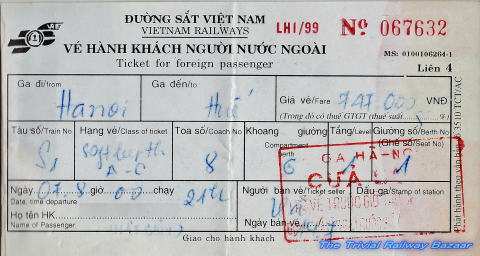 ĐƯỜNG SẮT VIỆT NAM
VIETNAM RAILWAYS LH1/99 Nº 067632
VÉ HÀNH KHÁCH NGƯỜI NƯỚC NGOÀI
MS: 0100106264-1
Ticket for foreign passenger Liên 4
Ga đi/from Ga đến/to Giá vé/Fare 747.000 VNĐ
Hanoi Huế (Trong đó có thuế GTGT (thuế suất %)
Tàu số/Train No Hạng vé/Class of ticket Toa số/Coach No Khoang giường Tầng/Level Giường số/Berth No
Compartment berth (Ghế số/Seat No)
S1 soft berth A-C 8 6 1 1
GA HÀ-NỘI
CỬA
Ngày 07.8 giờ 00 chạy 21h Người bán vé/Ticket seller Dấu ga/Stamp of station
Date, time departure
Họ tên HK Ngày bán vé
Name of Passenger
Giao cho hành khách
Phát hành theo văn bản số 3510 TCT/AC
The Trivial Railway Bazaar